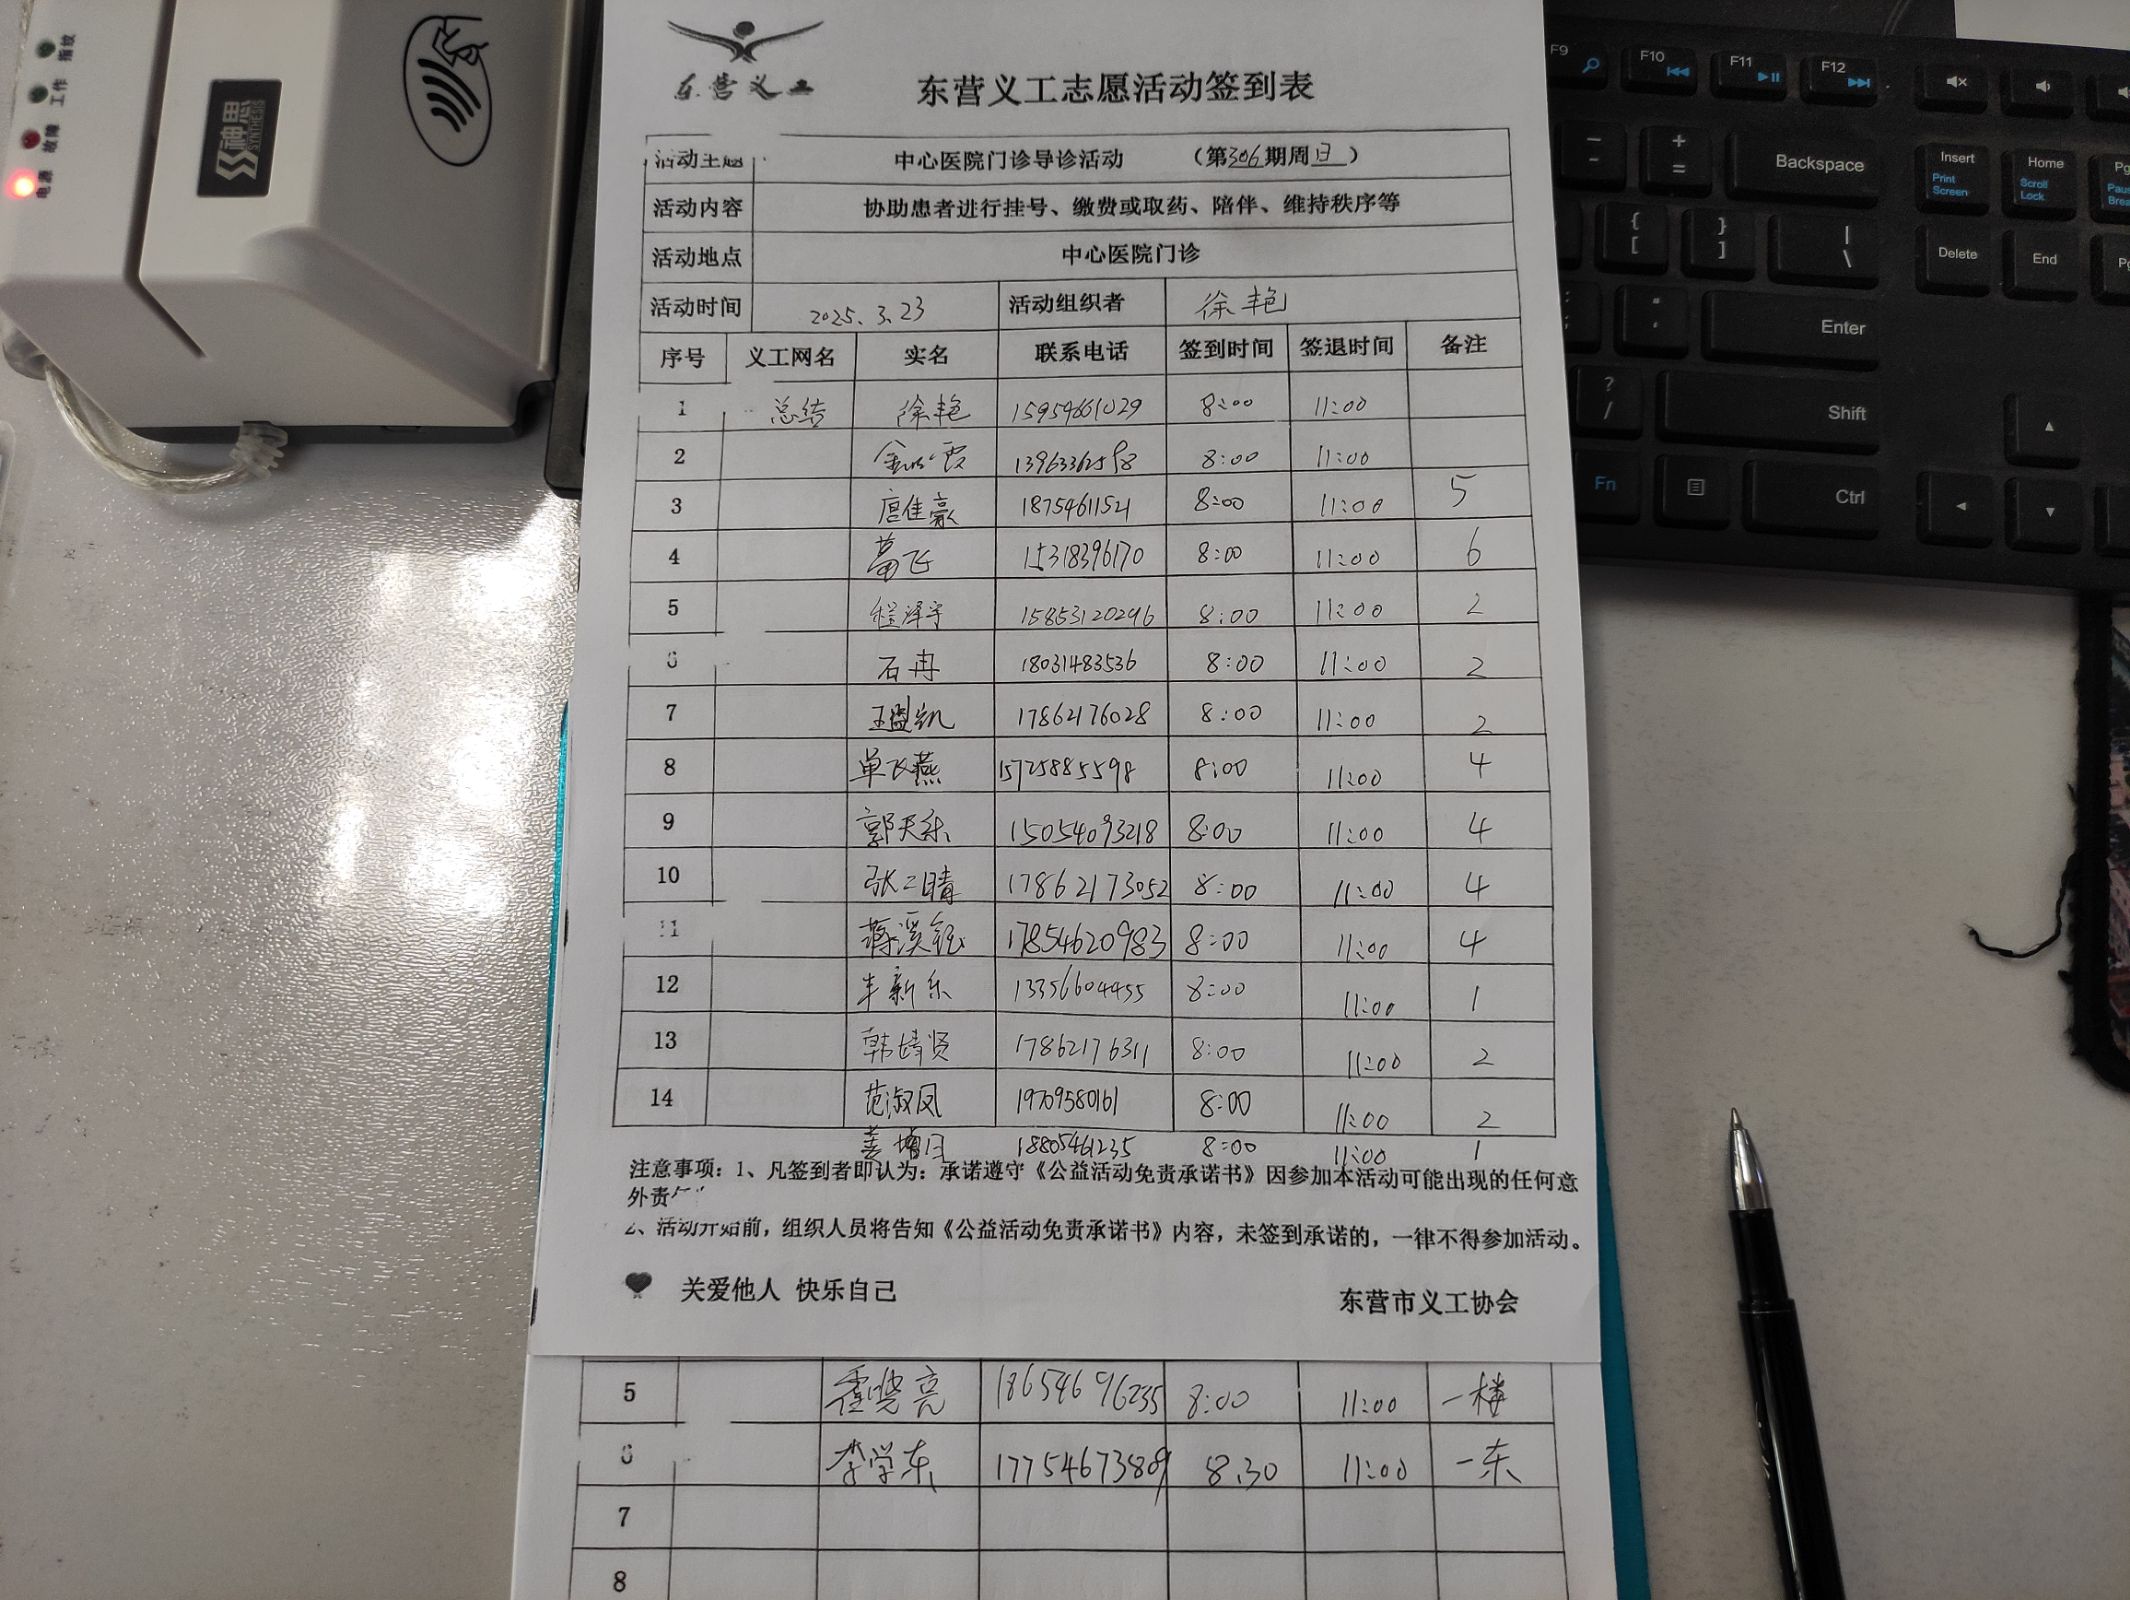 指纹
工作
故障
电源
神思
SYNTHESIS
东营义工
东营义工志愿活动签到表
活动主题 中心医院门诊导诊活动 （第306期周日）
活动内容 协助患者进行挂号、缴费或取药、陪伴、维持秩序等
活动地点 中心医院门诊
活动时间 2025.3.23 活动组织者 徐艳
序号 义工网名 实名 联系电话 签到时间 签退时间 备注
1 总结 徐艳 15954661029 8:00 11:00
2 13963362598 8:00 11:00
3 唐佳豪 18754611521 8:00 11:00 5
4 葛飞 15318396170 8:00 11:00 6
5 程泽宇 15853120296 8:00 11:00 2
6 石冉 18031483536 8:00 11:00 2
7 王盟凯 17862176028 8:00 11:00 2
8 单飞燕 15725885598 8:00 11:00 4
9 郭天乐 15054093218 8:00 11:00 4
10 张二晴 17862173052 8:00 11:00 4
11 蒋溪钰 17854620983 8:00 11:00 4
12 新乐 13356604455 8:00 11:00 1
13 韩靖贤 17862176311 8:00 11:00 2
14 范淑凤 19709580161 8:00 11:00 2
姜 18805461235 8:00 11:00 1
注意事项：1、凡签到者即认为：承诺遵守《公益活动免责承诺书》因参加本活动可能出现的任何意
外责
2、活动开始前，组织人员将告知《公益活动免责承诺书》内容，未签到承诺的，一律不得参加活动。
关爱他人 快乐自己
东营市义工协会
5 霍晓亮 18654696235 8:00 11:00 一楼
6 李学东 17754673889 8.30 11:00 一东
7
8
F9
F10
F11
F12
Backspace
Insert
Print Screen
Home
Scroll Lock
Delete
End
Enter
Shift
Fn
Ctrl